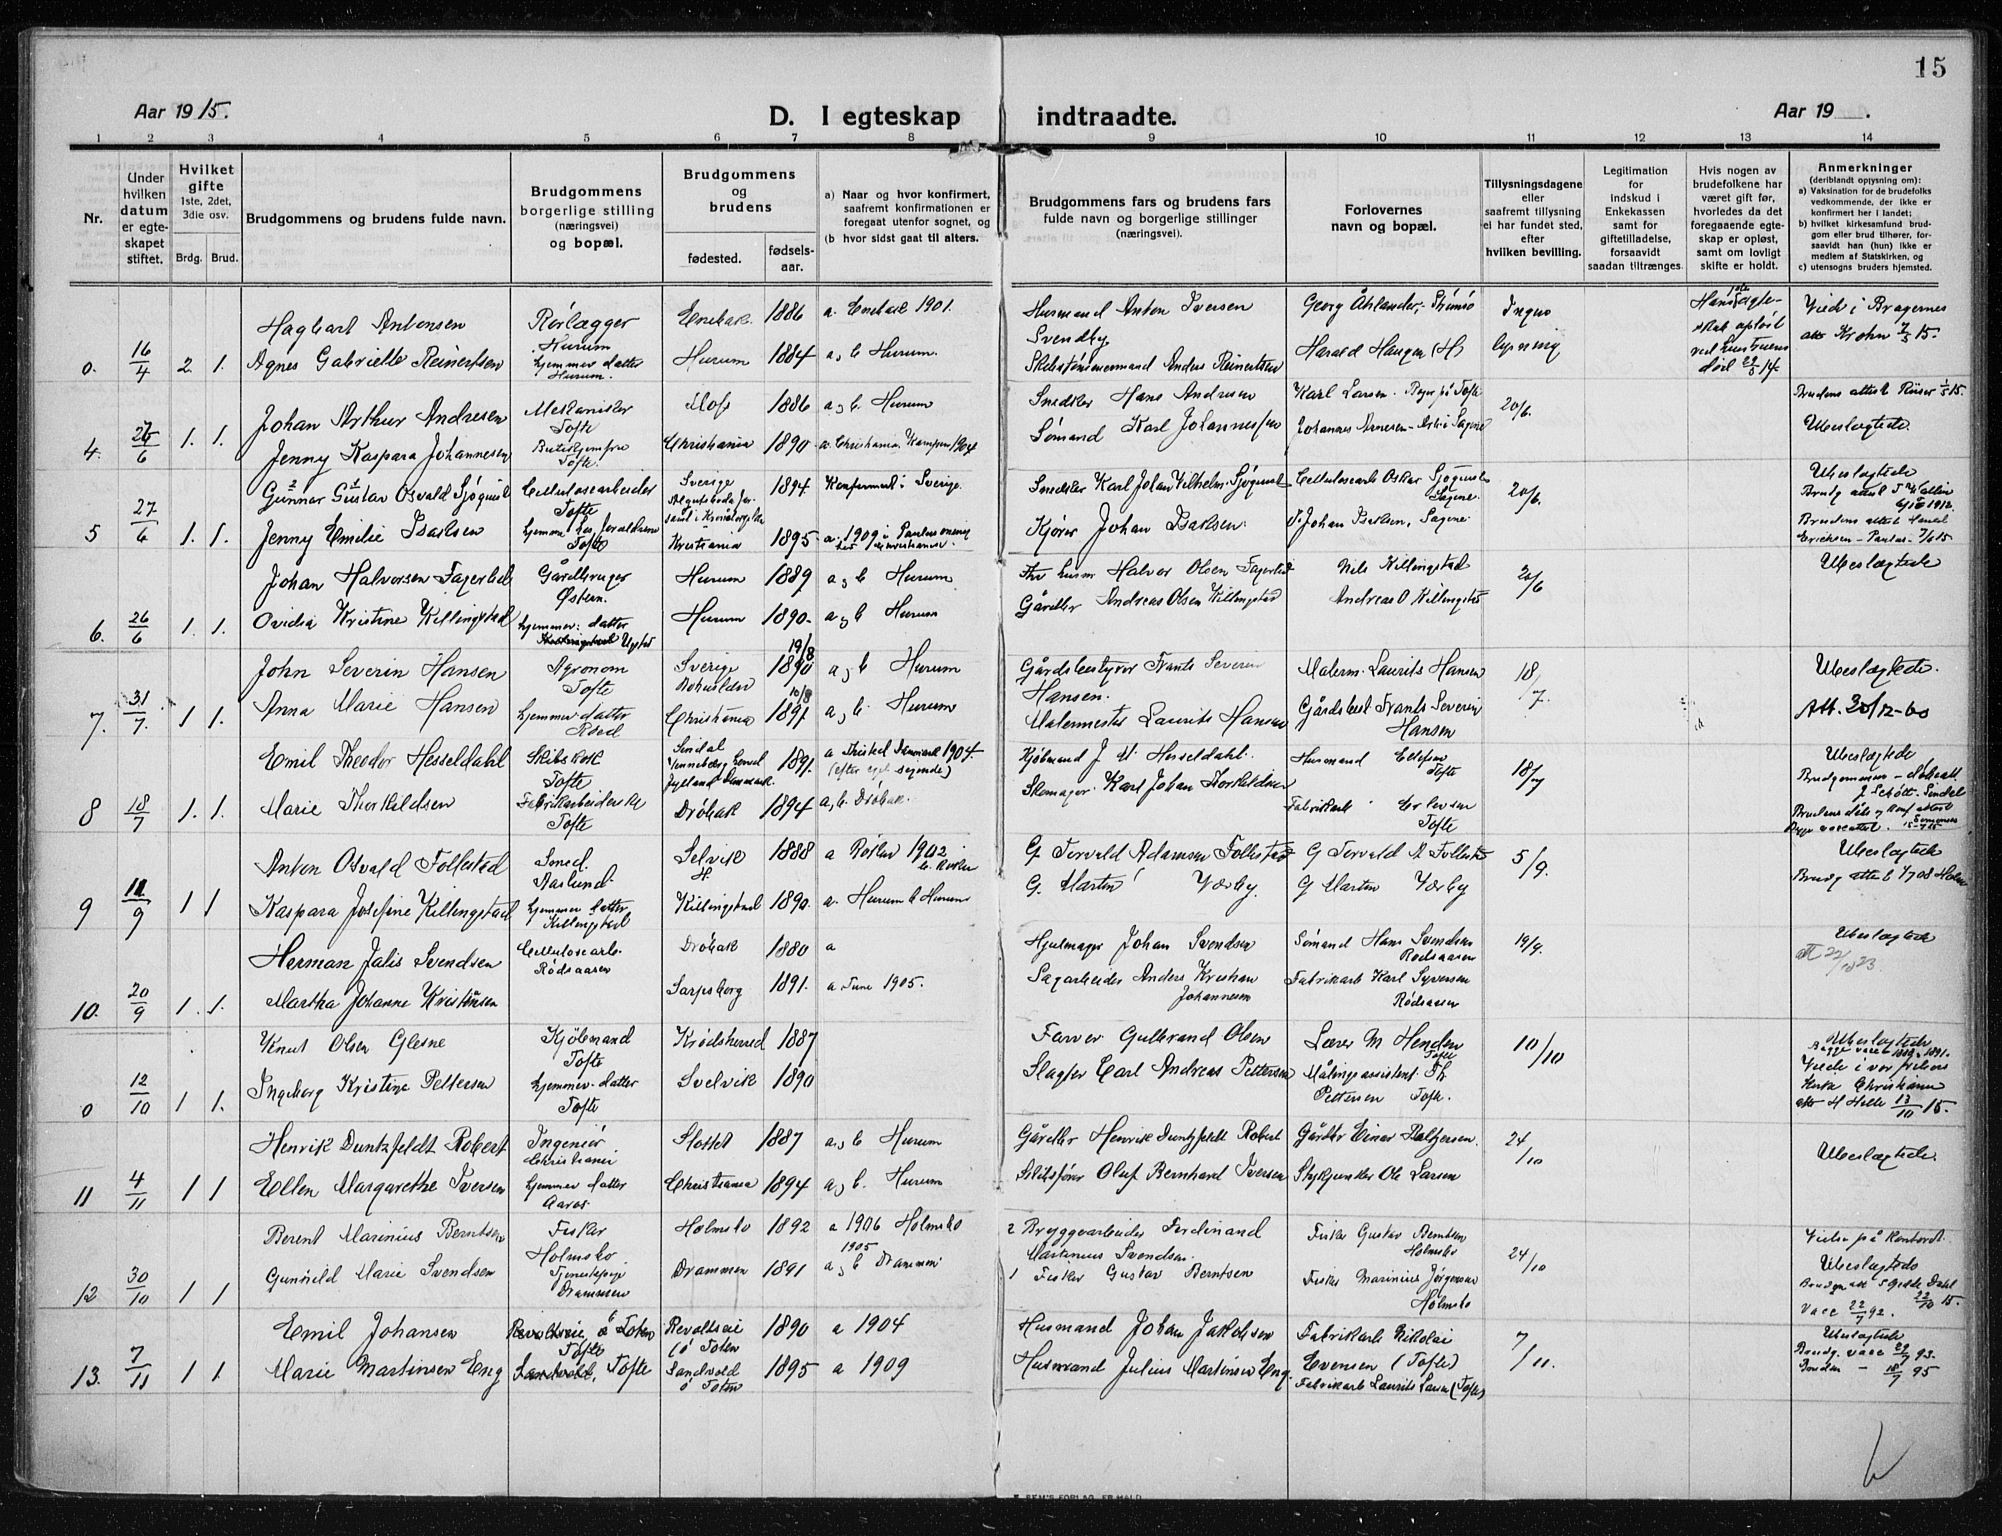 15
Aar 1915.
D. I egteskap indtraadte.
Aar 19 .
1 2 3 4 5 6 7 8 9 10 11 12 13 14
Nr.
Under hvilken datum er egteskapet stiftet.
Hvilket gifte 1ste, 2det, 3die osv.
Brdg. Brud.
Brudgommens og brudens fulde navn.
Brudgommens borgerlige stilling (næringsvei) og bopæl.
Brudgommens og brudens
fødested. fødsels-aar.
a) Naar og hvor konfirmert, saafremt konfirmationen er foregaat utenfor sognet, og
(b hvor sidst gaat til alters.
Brudgommens fars og brudens fars fulde navn og borgerlige stillinger (næringsvei).
Forlovernes navn og bopæl.
Tillysningsdagene eller saafremt tillysning ei har fundet sted, efter hvilken bevilling.
Legitimation for indskud i Enkekassen samt for giftetilladelse, forsaavidt saadan tiltrænges.
Hvis nogen av brudefolkene har været gift før, hvorledes da det foregaaende egteskap er opløst, samt om lovligt skifte er holdt.
Anmerkninger (deriblandt oplysning om):
a) Vaksination for de brudefolks vedkommende, der ikke er konfirmert her i landet;
b) hvilket kirkesamfund brudgom eller brud tilhører, forsaavidt han (hun) ikke er medlem af Statskirken, og
c) utensogns bruders hjemsted.
0. 16/4 2. 1.
Hagbart Antonsen Rørlægger Hurum Enebak 1886 a. Enebak 1901. Husmand Anton Iversen Svendby Georg Åhlander, Ingen lysning Viede i Bragernes
Agnes Gabrielle Reinertsen hjemmev. datter Hurum. Hurum 1884 a, b Hurum. Anders Reinertsen Harald Haugen (H) att Krohn 15.
4. 6 1. 1.
Johan Arthur Andresen Mekaniker Tofte Moss 1886 a, b. Hurum Snedker Hans Andresen Karl Larsen. 20/6. Brudens attest Riiser 15.
Jenny Kaspara Johannesen Tofte. Christiania 1890 a. Christiania Kampen 1904 Sømand Karl Johannesen Johannes Arnesen Sagene Ubeslægtede.
5 27/6 1. 1.
Gunnar Gustav Osvald Sjøquist Cellulosearbeider Tofte Sverige 1894. Konfirmert i Sverige. Snedker Karl Johan Vilhelm Sjøquist Cellulosearb Oskar Sjøquist Sagene. 20/6. Ubeslægtede
Jenny Emilie Isaksen hjemme hos forældrene Tofte Kristiania 1895 a. 1909 i Paulus menig Kjører Johan Isaksen. Johan Isaksen, Sagene. Brudens attest
6. 26/6 1. 1.
Johan Halvorsen Fagerlid Gårdbruger Østern. Hurum 1889 a, b Hurum Halvor Olsen Fagerlid Nils Killingstad 20/6 Ubeslægtede
Ovidia Kristine Killingstad hjemmev. datter Hurum 1890. a, b Hurum Gårdbr Andreas Olsen Killingstad Andreas O Killingstad
7. 31/7. 1 1.
John Severin Hansen Agronom Tofte Sverige Bohuslen 19/8 1890 a, b Hurum Gårdsbestyrer Frants Severin Hansen. Malerm. Laurits Hansen 18/7. Ubeslægtede.
Anna Marie Hansen hjemmev datter Christiania 10/8 1891 a, b. Hurum Malermester Laurits Hansen Gårdsbest Frants Severin Hansen Att. 30/12-60
8 18/7 1. 1.
Emil Theodor Hesseldahl Skibskok Tofte Sindal Jylland Danmark. 1891. a Danmark 1904. (efter eget sigende) Kjøbmand J. Hesseldahl. Husmand Tofte 18/7 Ubeslægtede
Marie Thorkildsen Fabrikarbeiderske Tofte Drøbak 1894 a, b. Drøbak. Skomager. Karl Johan Thorkildsen Fabrikarb Tofte
9 11/9 1 1
Anton Osvald Follestad Smed. Selvik 1888 a Røken 1902 b. Røken G. Torvald Adamsen Follestad G Torvald A Follestad 5/9. Ubeslægtede
Kaspara Josefine Killingstad hjemmev datter Killingstad Killingstad 1890. a. Hurum b Hurum G. Martin Værby. G Martin Værby
10. 20/9 1. 1.
Herman Julis Svendsen Cellulosearb. Rødsaasen Drøbak 1880 a Hjulmager Johan Svendsen Sømand Hans Svendsen Rødsaasen 19/9. Ubeslægtede
Martha Johanne Kristiansen Sarpsborg 1891. a Tune 1905. Sagarbeider Anders Kristian Johannesen Fabrikarb Karl Syversen Rødsaasen
0 12/10 1 1.
Knut Olsen Glesne Kjøbmand Tofte Krødsherred 1887 Farver Gulbrand Olsen Lærer M Henden Tofte 10/10 Ubeslægtede
Ingeborg Kristine Pettersen hjemmev. datter Tofte Svelvik 1890 Slagter Carl Andreas Pettersen Målingsassistent Th Pettersen Tofte. Viede i vor frelsers kirke Christiania att H Helle 13/10 15.
11 4/11 1 1
Henrik Duntzfeldt Robert Ingeniør Christiania Slottet 1887 a, b Hurum Gårdbr Henrik Duntzfeldt Robert Gårdbr Einar Baltzersen. 24/10 Ubeslægtede.
Ellen Margarethe Iversen hjemmev datter Aaros Christiania 1894 a, b. Hurum Skibsfører Oluf Bernhard Iversen Stykjunker Ole Larsen
12 30/10 1 1
Berent Marinius Berntsen Fisker Holmsbo Holmsbo 1892 a 1906 Holmsbo 2 Bryggearbeider Ferdinand Martinius Svendsen. Fisker Gustav Berntsen Holmsbo 24/10 Vielse på kontoret. Ubeslægtede
Gunhild Marie Svendsen Tjenestepige Drammen Drammen 1891 1905 a, b Drammen 1 Fisker Gustav Berntsen Fisker Marinius Jørgensen Holmsbo Vacc 22/7 92.
13. 7/11 1 1.
Emil Johansen Tofte Ø Toten 1890 a 1904 Husmand Johan Jakobsen Fabrikarb Nikolai Evensen (Tofte) 7/11. Ubeslægtede Brudg. vacc 93.
Marie Martinsen Eng Sandvold, Tofte Sandvold Ø Toten 1895 a 1909 Husmand Julius Martinsen Eng. Fabrikarb Laurits Larsen (Tofte) Bruden 95